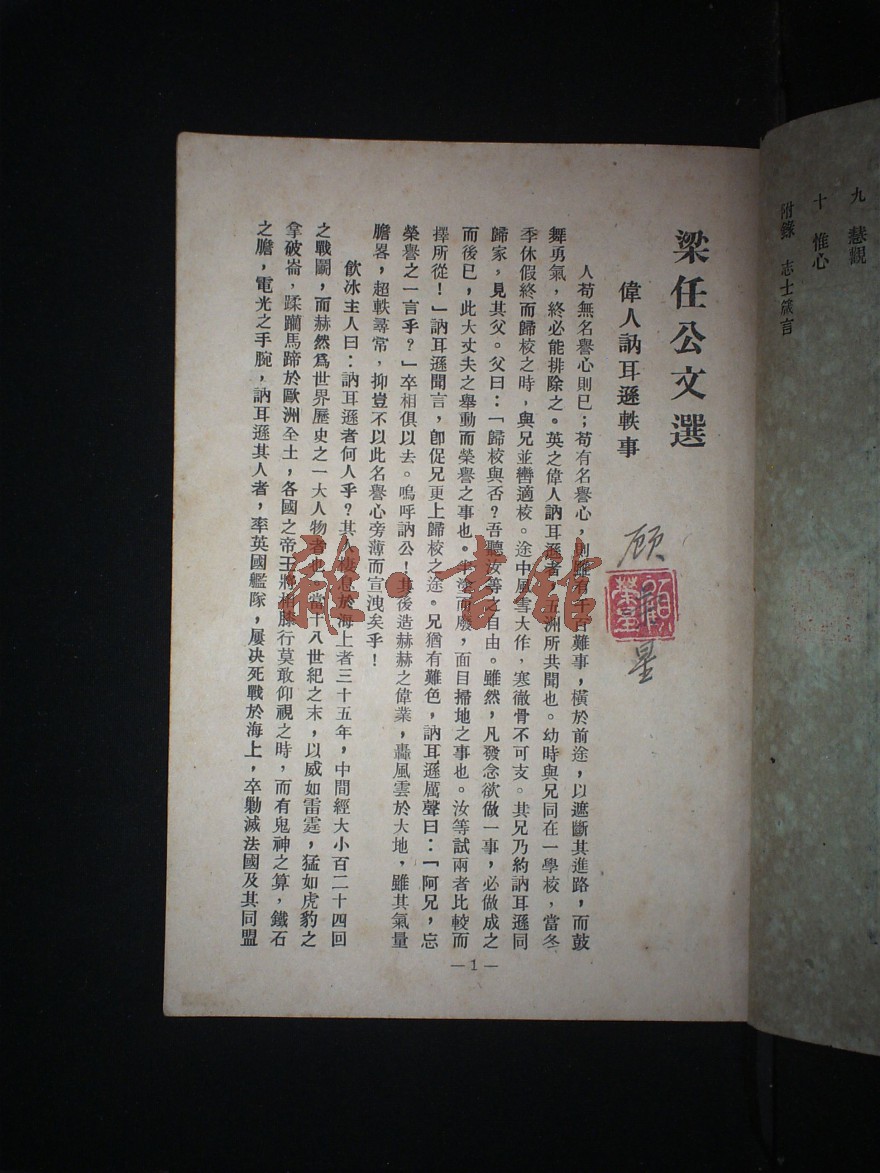 九 慧觀
十 惟心
附錄 志士箴言
梁任公文選
偉人訥耳遜軼事
人苟無名譽心則已；苟有名譽心，則雖有千百難事，橫於前途，以遮斷其進路，而鼓
舞勇氣，終必能排除之。英之偉人訥耳遜者，五洲所共聞也。幼時與兄同在一學校，當冬
季休假終而歸校之時，與兄並轡適校。途中風雪大作，寒徹骨不可支。其兄乃約訥耳遜同
歸家，見其父。父曰：「歸校與否？吾聽汝等之自由。雖然，凡發念欲做一事，必做成之
而後已，此大丈夫之舉動而榮譽之事也。半塗而廢，面目掃地之事也。汝等試兩者比較而
擇所從！」訥耳遜聞言，卽促兄更上歸校之途。兄猶有難色，訥耳遜厲聲曰：「阿兄，忘
榮譽之一言乎？」卒相俱以去。嗚呼訥公！其後造赫赫之偉業，轟風雲於大地，雖其氣量
膽畧，超軼尋常，抑豈不以此名譽心旁薄而宣洩矣乎！
飲冰主人曰：訥耳遜者何人乎？其人棲息於海上者三十五年，中間經大小百二十四回
之戰鬭，而赫然爲世界歷史之一大人物者也。當十八世紀之末，以威如雷霆，猛如虎豹之
拿破崙，蹂躪馬蹄於歐洲全土，各國之帝王將相膝行莫敢仰視之時，而有鬼神之算，鐵石
之膽，電光之手腕，訥耳遜其人者，率英國艦隊，屢決死戰於海上，卒勦滅法國及其同盟
—1—
顾 星
雜·書館